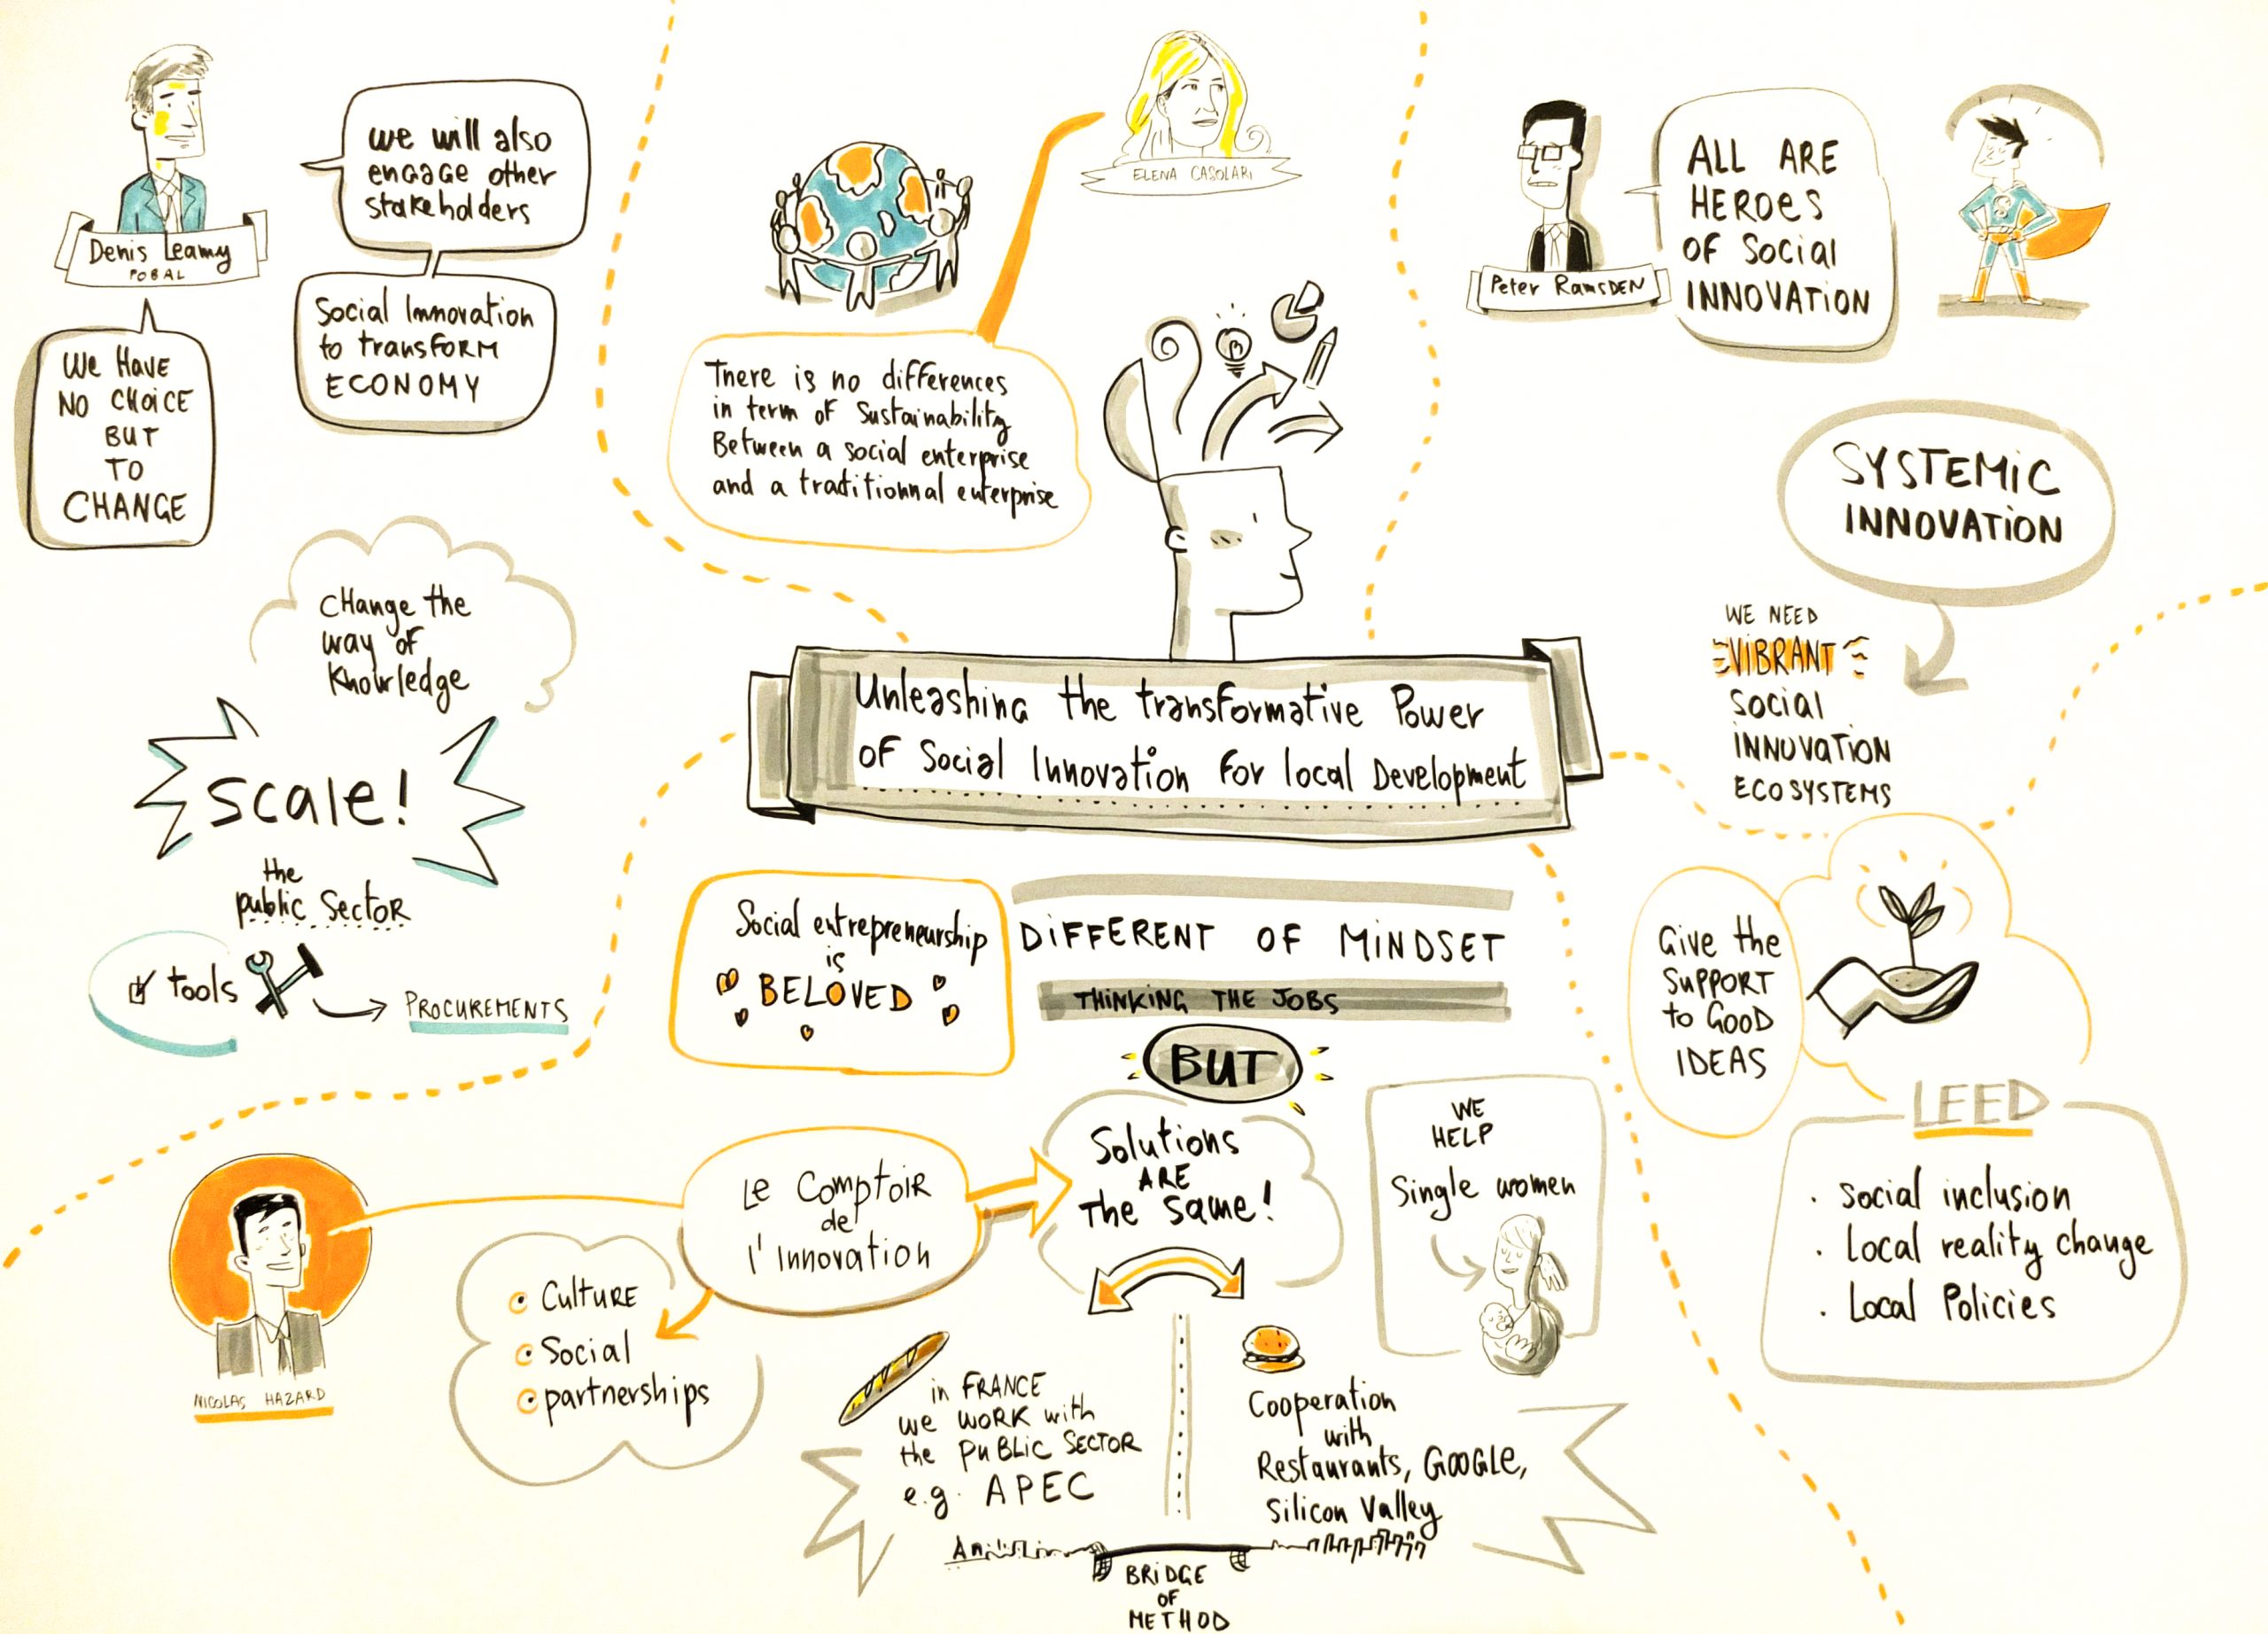 Denis Leamy
POBAL
we will also
engage other
stakeholders
Social Innovation
to transFORM
ECONOMY
WE HAVE
NO CHOICE
BUT
TO
CHANGE
CHange the
way of
Knowledge
Scale!
the
public Sector
tools
PROCUREMENTS
ELENA CASOLARI
There is no differences
in term of Sustainability
Between a social enterprise
and a traditionnal enterprise
Peter RamsDEN
ALL ARE
HEROES
OF Social
INNOVATION
SYSTEMIC
INNOVATION
WE NEED
VIBRANT
Social
INNOVATION
ECOSYSTEMS
Unleashing the transformative Power
of Social Innovation for local Development
Social entrepreneurship
is
BELOVED
DIFFERENT OF MINDSET
THINKING THE JOBS
BUT
Solutions
ARE
The Same!
Le Comptoir
de
l'Innovation
NICOLAS HAZARD
Culture
Social
partnerships
in FRANCE
we WORK with
the PUBLIC SECTOR
e.g. APEC
Cooperation
with
Restaurants, GOOGLE,
Silicon Valley
BRIDGE
OF
METHOD
WE
HELP
Single women
Give the
SUPPORT
to GOOD
IDEAS
LEED
. Social inclusion
. Local reality change
. Local Policies